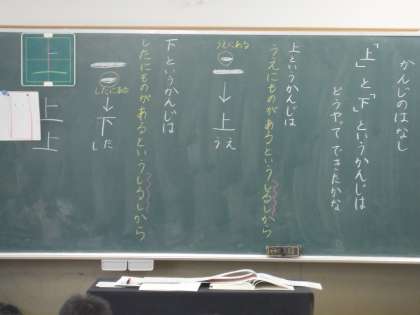 かんじのはなし
「上」と「下」というかんじは
どうやって できたかな
上というかんじは
うえにものがあるというしるしから
うえにある
上
うえ
下というかんじは
したにものがあるというしるしから
したにある
下
した
上
上